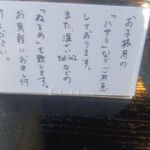 お子様用の
「ハサミ」などご用意
しております。
また、温かいなどの
「ぬるめ」も致します。
お気軽にお申し付
けください。